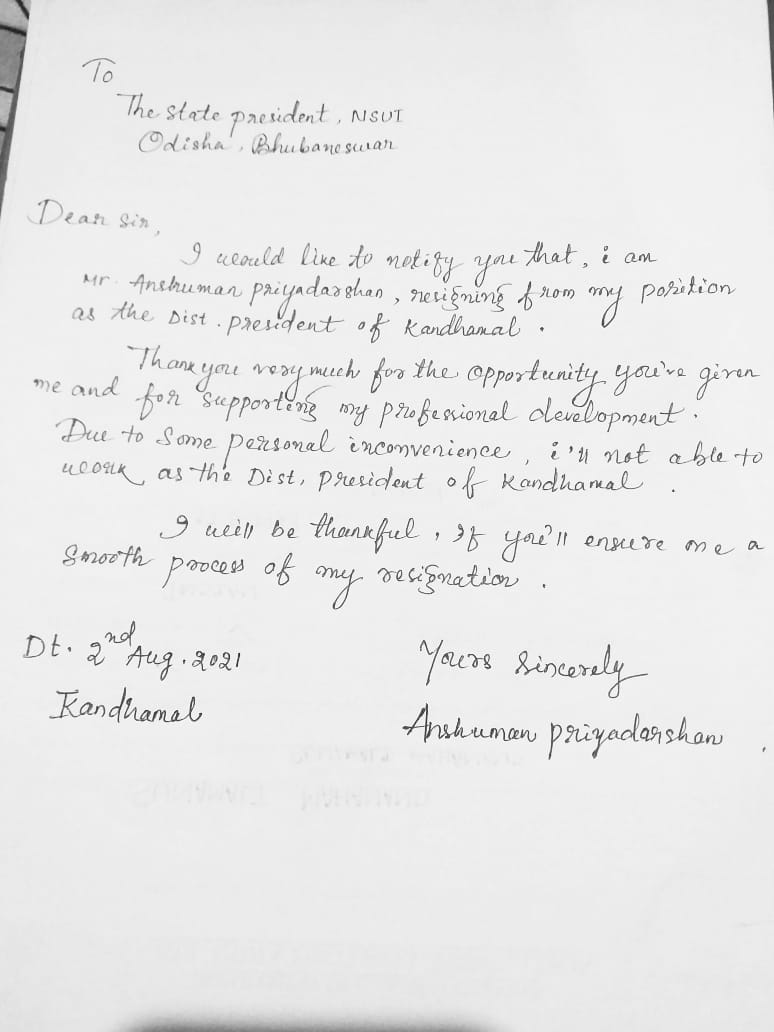 To
The state president, NSUI
Odisha, Bhubaneswar
Dear Sir,
I would like to notify you that, i am
Mr. Anshuman priyadarshan, resigning from my position
as the Dist. president of Kandhamal.
Thank you very much for the opportunity you've given
me and for supporting my professional development.
Due to some personal inconvenience, i'll not able to
work as the Dist, president of Kandhamal.
I will be thankful, If you'll ensure me a
smooth process of my resignation.
Dt. 2nd Aug. 2021
Yours Sincerely
Kandhamal
Anshuman priyadarshan.